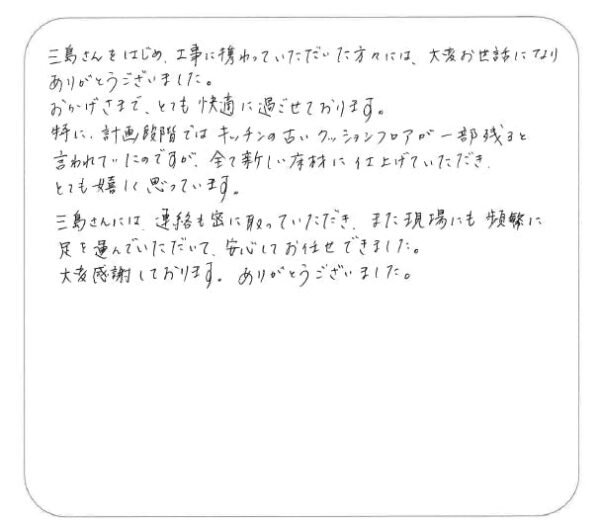 三島さんをはじめ、工事に携わっていただいた方々には、大変お世話になり
ありがとうございました。
おかげさまで、とても快適に過ごせております。
特に、計画段階ではキッチンの古いクッションフロアが一部残ると
言われていたのですが、全て新しい床材に仕上げていただき、
とても嬉しく思っています。
三島さんには、連絡も密に取っていただき、また現場にも頻繁に
足を運んでいただいて、安心してお任せできました。
大変感謝しております。ありがとうございました。